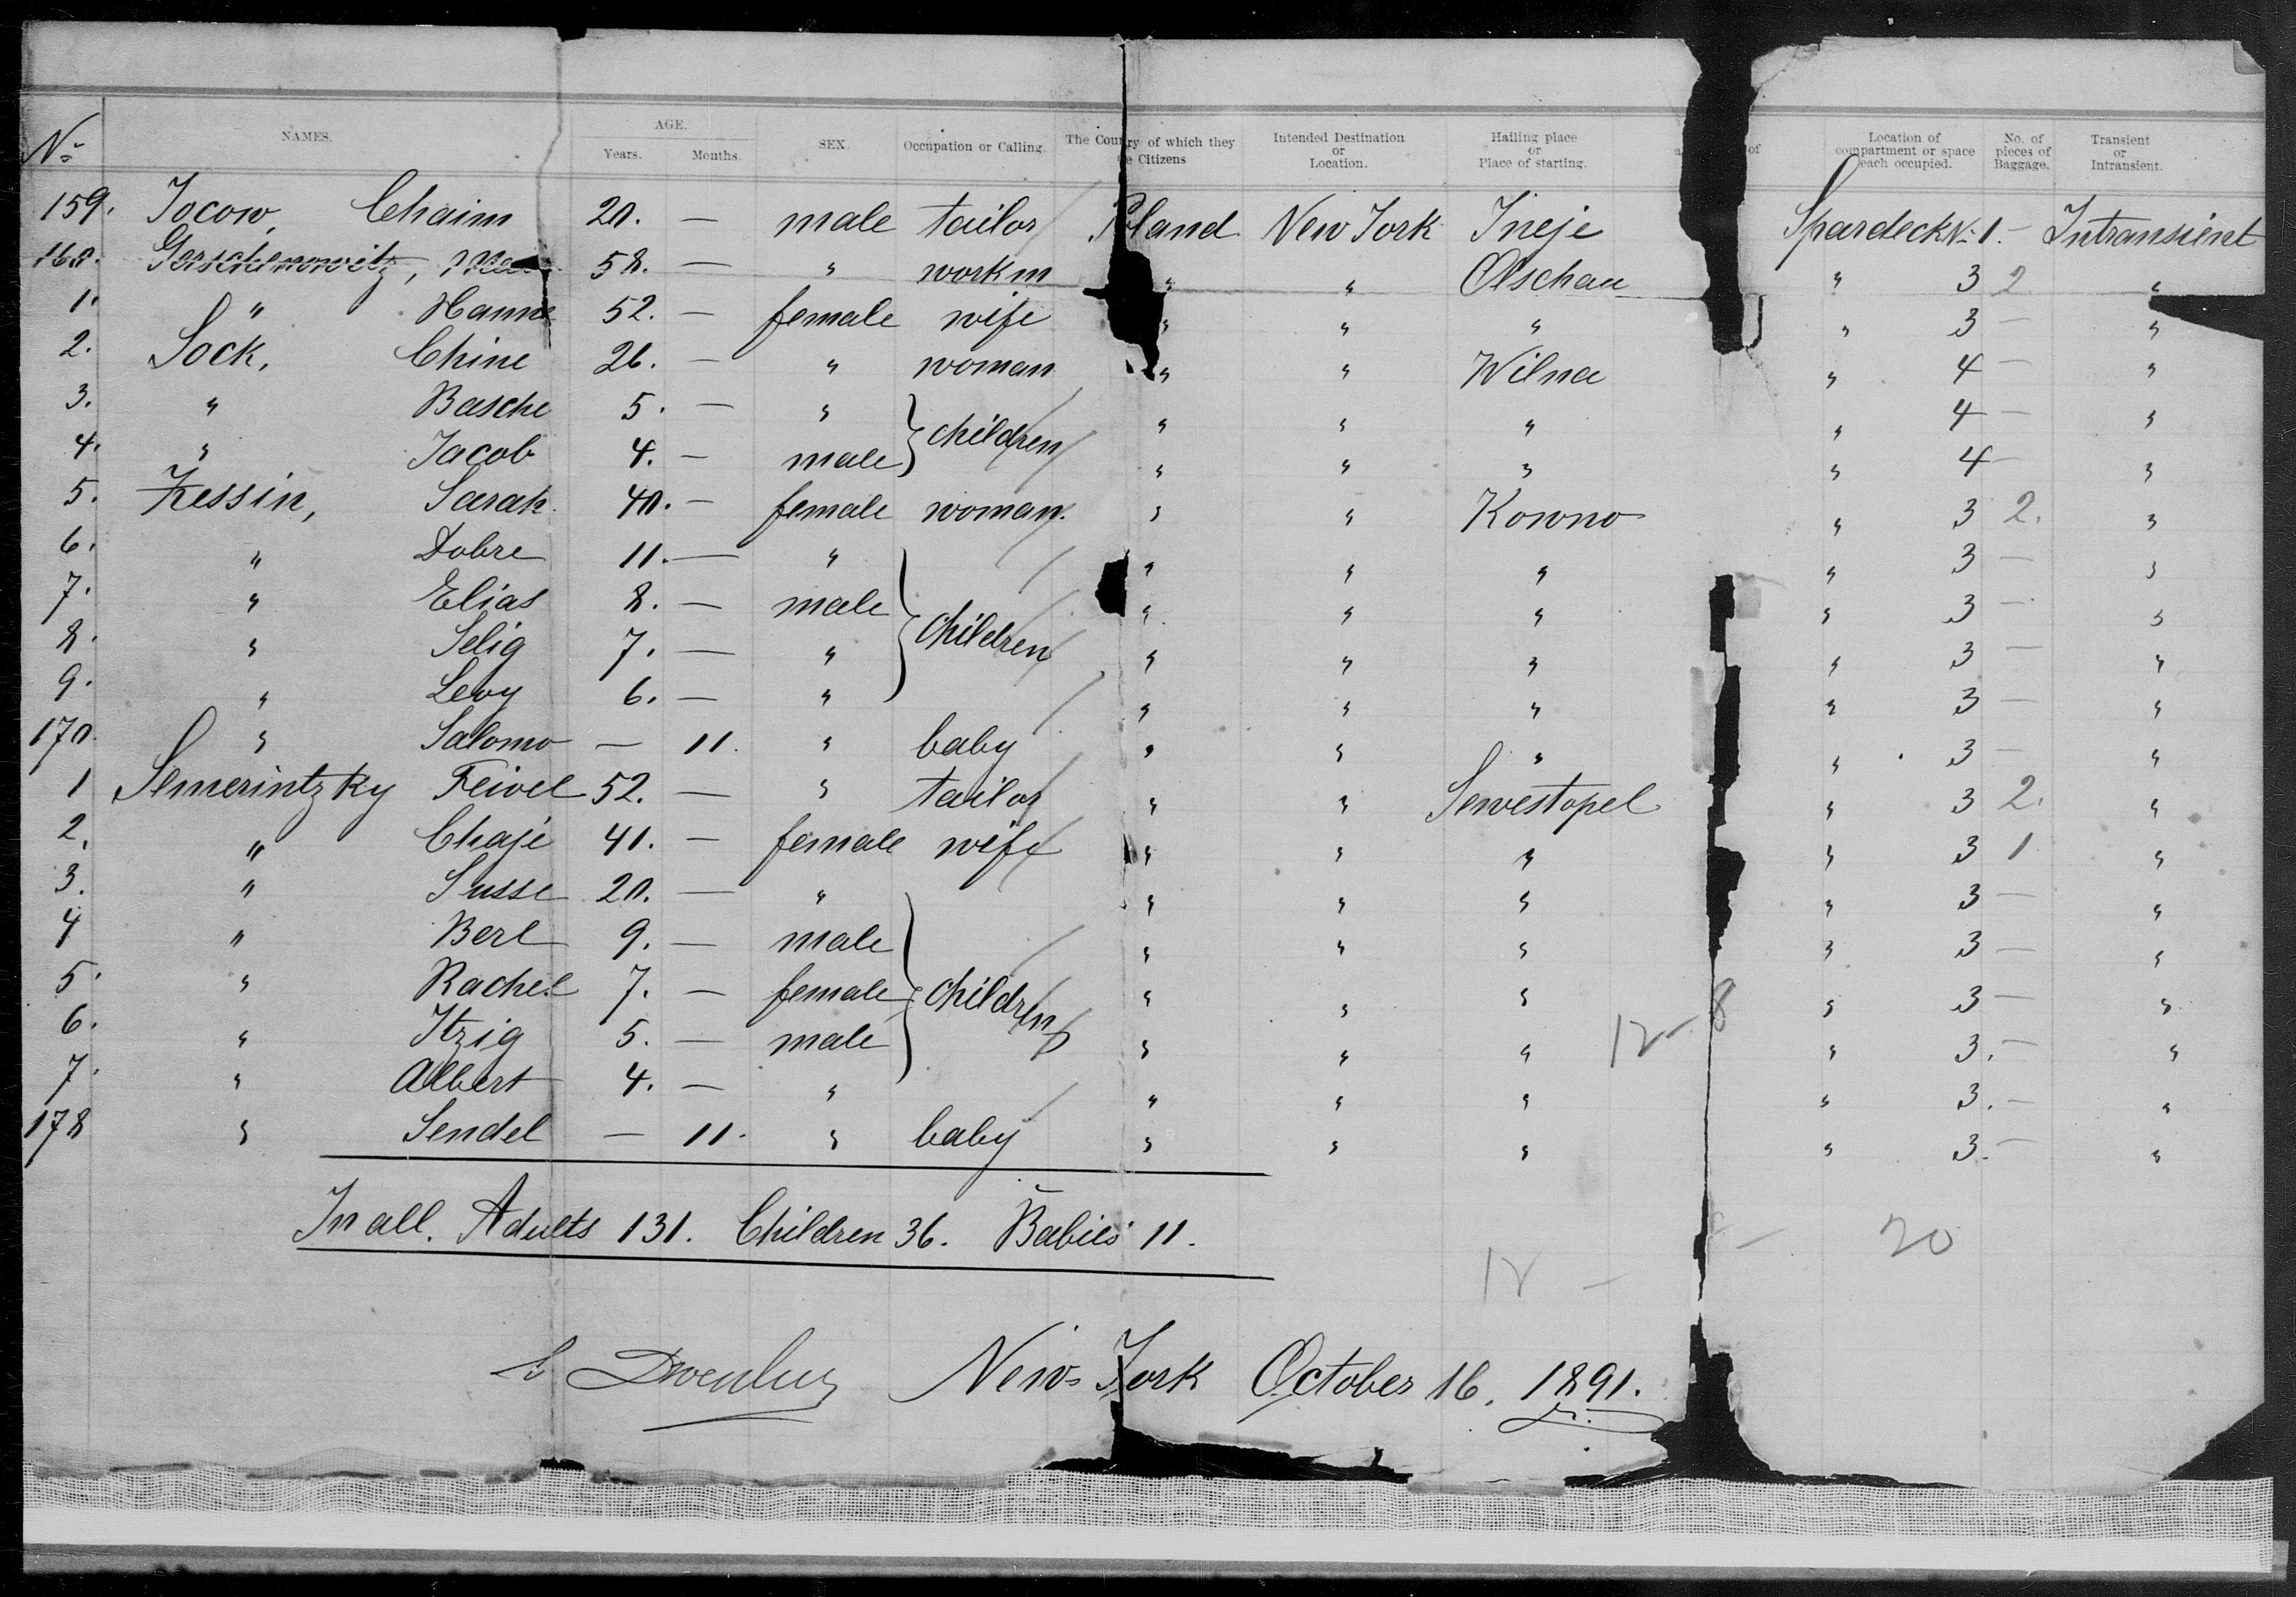 NAMES. AGE. SEX. Occupation or Calling. The Country of which they Citizens Intended Destination or Location. Hailing place or Place of starting. of Location of compartment or space each occupied. No. of pieces of Baggage. Transient or Intransient.
No Years. Months.
159. Jocow, Chaim 20. — male tailor Poland New York Ineje Spardeck No 1. — Intransient
160. Gerschenowitz, 58. — " workm " " Olschau " 3 2 "
1. " Hanne 52. — female wife " " " " 3 — "
2. Sock, Chine 26. — " woman " " Wilna " 4 — "
3. " Basche 5. — " children " " " " 4 — "
4. " Jacob 4. — male " " " " 4 — "
5. Kessin, Sarah 40. — female woman. " " Kowno " 3 2. "
6. " Dobre 11. — " " " " " 3 — "
7. " Elias 8. — male children " " " " 3 — "
8. " Selig 7. — " " " " " 3 — "
9. " Levy 6. — " " " " " 3 — "
170. " Salomo — 11. " baby " " " " 3 — "
1 Semerintzky Feivel 52. — " tailor " " Sewestopel " 3 2. "
2. " Chaje 41. — female wife " " " " 3 1 "
3. " Susse 20. — " " " " " 3 — "
4 " Berl 9. — male " " " " 3 — "
5. " Rachel 7. — female children " " " " 3 — "
6. " Itzig 5. — male " " " 12 - 8 " 3. — "
7. " Albert 4. — " " " " " 3. — "
178 " Sendel — 11. " baby " " " " 3. — "
In all. Adults 131. Children 36. Babies 11.
12 — — 20
New York October 16. 1891.